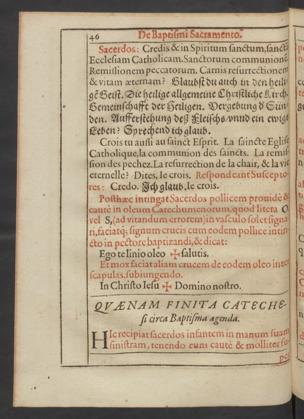 46 De Baptismi Sacramento.
Sacerdos: Credis & in Spiritum sanctum, sancta
Ecclesiam Catholicam. Sanctorum communionē
Remissionem peccatorum. Carnis resurrectionem
& vitam æternam? Glaubst du auch in den heili-
gē Geist. Die heilige allgemeine Christliche Kirch.
Gemeinschafft der Heiligen. Vergebung der Sün-
den. Aufferstehung deß Fleischs vnnd ein ewigs
Leben? Sprechend ich glaub.
Crois tu aussi au sainct Esprit. La saincte Eglise
Catholique, la communion des saincts. La remis-
sion des pechez. La resurrection de la chair, & la vie
eternelle? Dites, le crois. Respondeant Suscepto-
res: Credo. Ich glaub, le crois.
Posthæc intingat Sacerdos pollicem prouidè &
cautè in oleum Catechumenorum, quod litera O
vel S, (ad vitandum errorem) in vasculo solet signa-
ri, faciatq; signum crucis cum eodem pollice intin-
cto in pectore baptizandi, & dicat:
Ego te linio oleo ✠ salutis.
Et mox faciat aliam crucem de eodem oleo inter
scapulas, subiungendo.
In Christo Iesu ✠ Domino nostro.
QVÆNAM FINITA CATECHE-
si circa Baptisma agenda.
HIc recipiat sacerdos infantem in manum suam
sinistram, tenendo eum cautè & molliter